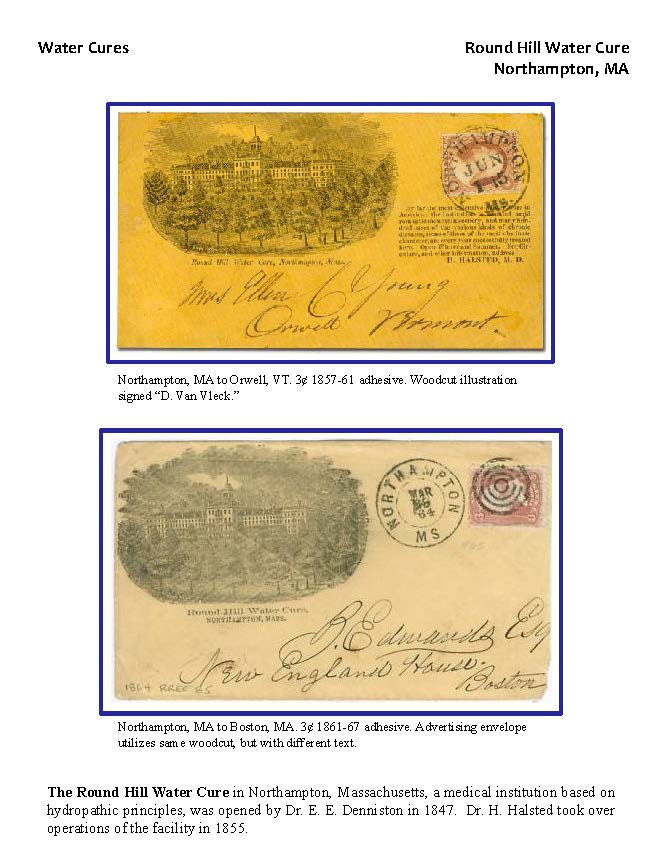 Water Cures
Round Hill Water Cure
Northampton, MA
NORTHAMPTON
JUN
15
Ms.
By far the most extensive in
America; the Institution
hundred cases of the various kinds of chronic
diseases, some of them of the most obstinate
character, are every year successfully treated
here. Open Winter and Summer. For Cir-
culars, and other information, address
H. HALSTED, M. D.
Round Hill Water Cure, Northampton, Mass.
Mrs Ellen C Young
Orwell Vermont.
Northampton, MA to Orwell, VT. 3¢ 1857-61 adhesive. Woodcut illustration
signed “D. Van Vleck.”
NORTHAMPTON
MAR
64
MS
3
Round Hill Water Cure,
NORTHAMPTON, MASS.
R. Edwards Esq
New England House.
Boston
1864 RREE 85
Northampton, MA to Boston, MA. 3¢ 1861-67 adhesive. Advertising envelope
utilizes same woodcut, but with different text.
The Round Hill Water Cure in Northampton, Massachusetts, a medical institution based on
hydropathic principles, was opened by Dr. E. E. Denniston in 1847. Dr. H. Halsted took over
operations of the facility in 1855.